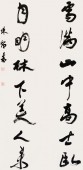 雪满山中高士卧
月明林下美人来